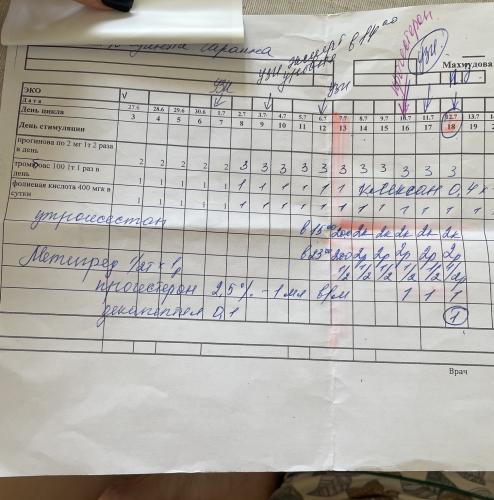 УЗИ эксперт в 19 00
узи
прогестерон
узи
Махмудова
ЭКО V
Дата 27.6 28.6 29.6 30.6 1.7 2.7 3.7 4.7 5.7 6.7 7.7 8.7 9.7 10.7 11.7 12.7 13.7
День цикла 3 4 5 6 7 8 9 10 11 12 13 14 15 16 17 18 19
День стимуляции
прогинова по 2 мг 1т 2 раза в день 2 2 2 2 2 3 3 3 3 3 3 3 3 3 3 3
тромбоас 100 1т 1 раз в день 1 1 1 1 1 1 1 1 1 1 1 клексан 0,4
фолиевая кислота 400 мкг в сутки 1 1 1 1 1 1 1 1 1 1 1 1 1 1 1 1
утрожестан в 15 00 200 2к 2к 2к 2к 2к
в 23 00 200 2р 2р 2р 2р 2р
Метипред 1/2т × 1р 1/2 1/2 1/2 1/2 1/2 1/2
прогестерон 2,5% - 1 мл в/м 1 1 1
декапептил 0,1 1
Врач